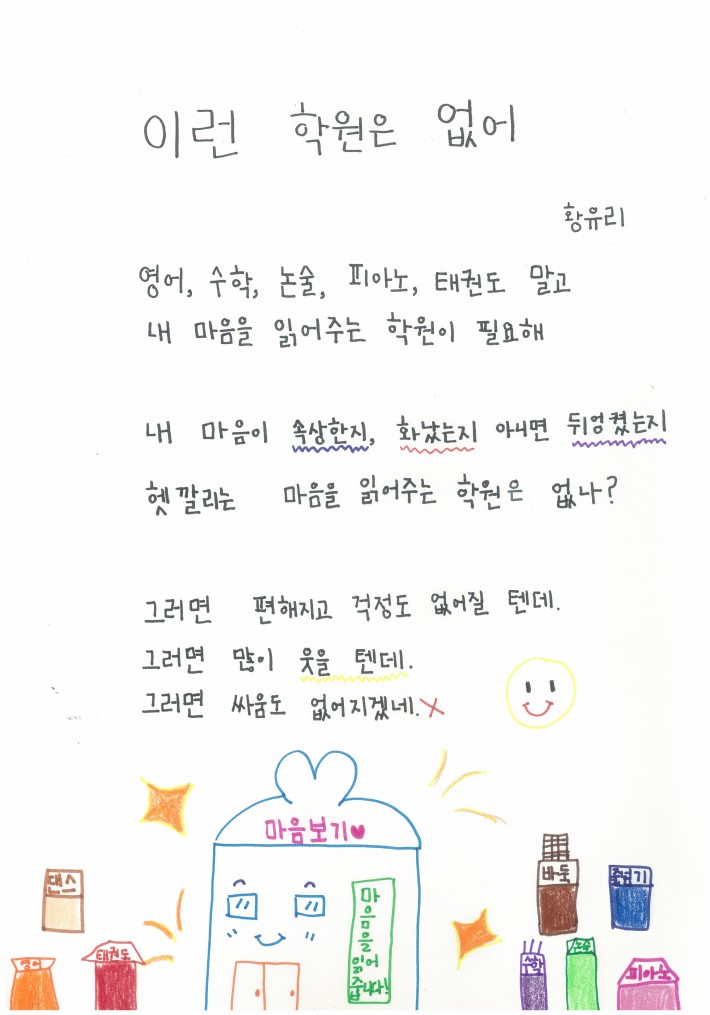 이런 학원은 없어
황유리
영어, 수학, 논술, 피아노, 태권도 말고
내 마음을 읽어주는 학원이 필요해
내 마음이 속상한지, 화났는지 아니면 뒤엉켰는지
헷갈리는 마음을 읽어주는 학원은 없나?
그러면 편해지고 걱정도 없어질 텐데.
그러면 많이 웃을 텐데.
그러면 싸움도 없어지겠네.
마음보기
마음을 읽어줍니다!
댄스
영어
태권도
바둑
줄넘기
수학
논술
피아노